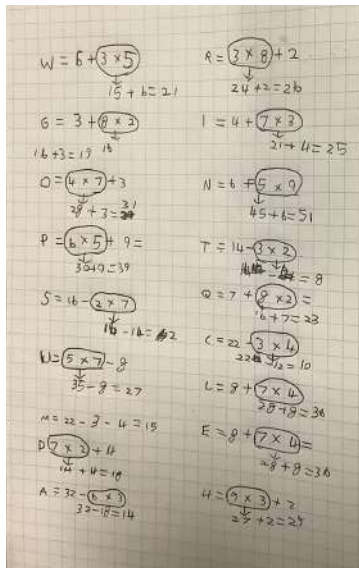 W = 6 + 3 × 5
15 + 6 = 21
G = 3 + 8 × 2
16
16 + 3 = 19
O = 4 × 7 + 3
28 + 3 = 31
P = 6 × 5 + 9 =
30 + 9 = 39
S = 16 - 2 × 7
- 14 = 2
U = 5 × 7 - 8
35 - 8 = 27
M = 22 - 3 - 4 = 15
D 7 × 2 + 4
14 + 4 = 18
A = 32 - 6 × 3
32 - 18 = 14
R = 3 × 8 + 2
24 + 2 = 26
I = 4 + 7 × 3
21 + 4 = 25
N = 6 + 5 × 9
45 + 6 = 51
T = 14 - 3 × 2
= 8
Q = 7 + 8 × 2 =
16 + 7 = 23
C = 22 - 3 × 4
22 - 12 = 10
L = 8 + 7 × 4
28 + 8 = 36
E = 8 + 7 × 4 =
28 + 8 = 36
H = 9 × 3 + 2
27 + 2 = 29